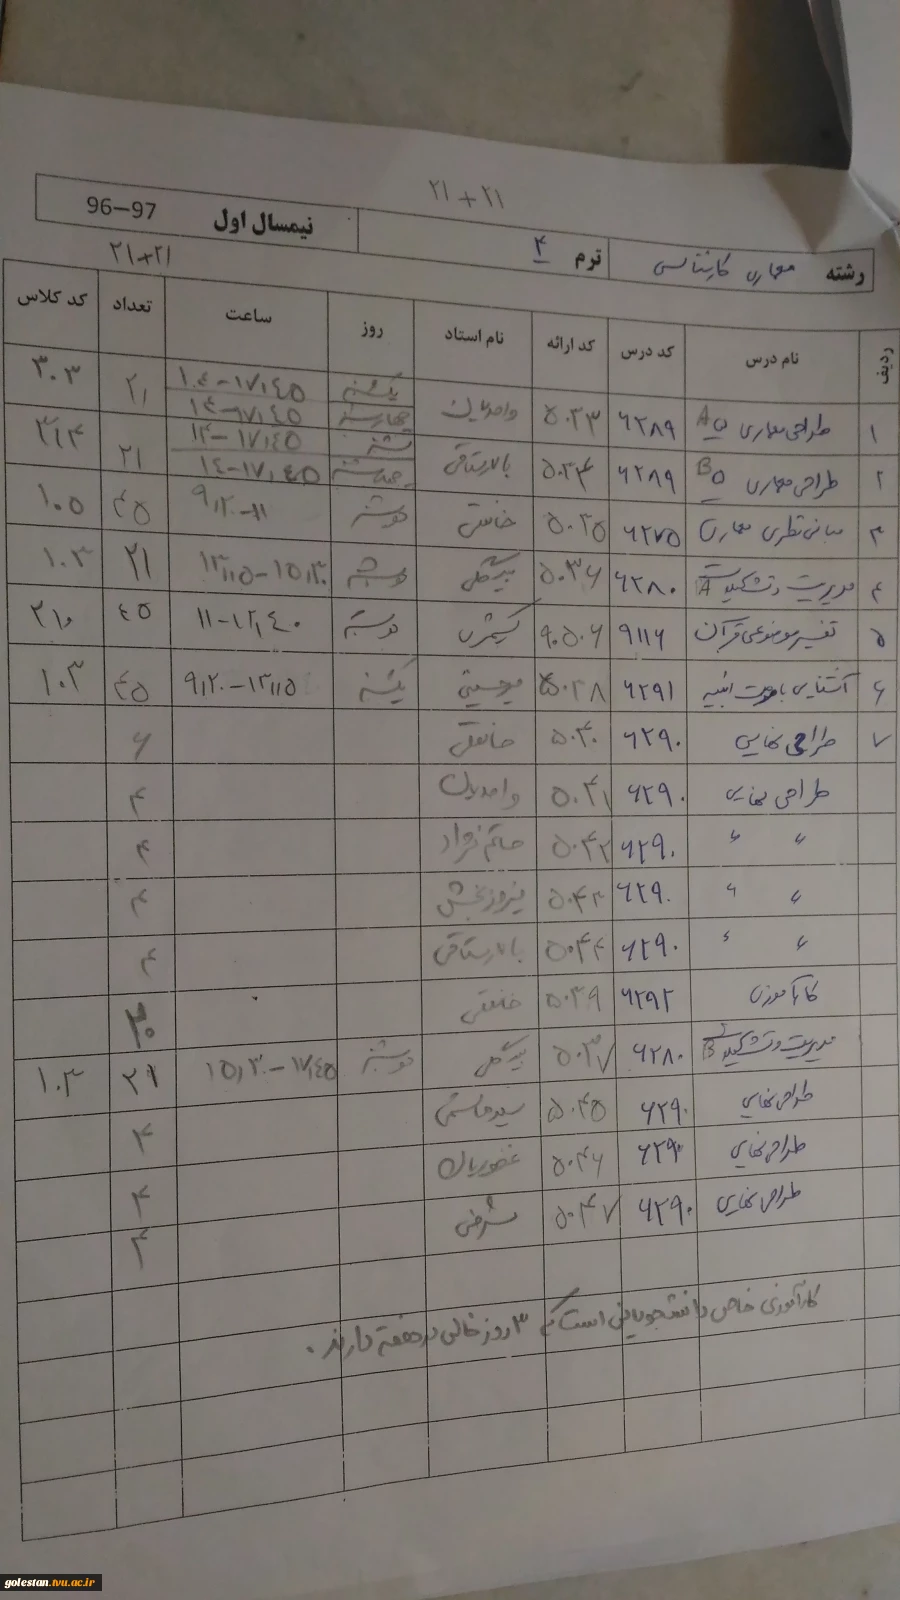 ۲۱+۲۱
رشته معماری کارشناسی ترم ۴ نیمسال اول 96–97
۲۱+۲۱
ردیف نام درس کد درس کد ارائه نام استاد روز ساعت تعداد کد کلاس
۱ طراحی معماری ۵ A ۶۲۸۹ ۵۰۳۳ واحدیان یکشنبه ۱۷,۴۵ ۲۱ ۳۰۳
چهارشنبه ۱۴-۱۷,۴۵
۲ طراحی معماری ۵ B ۶۲۸۹ ۵۰۳۴ بالارستاقی شنبه ۱۴-۱۷,۴۵ ۲۱ ۳۱۴
۱۴-۱۷,۴۵
۳ مبانی نظری معماری ۶۲۷۵ ۵۰۳۵ خانقی دوشنبه ۹,۲۰-۱۱ ۴۵ ۱۰۵
۴ مدیریت و تشکیلات A ۶۲۸۰ ۵۰۳۶ دوشنبه ۱۳,۱۵-۱۵,۳۰ ۲۱ ۱۰۳
۵ تفسیر موضوعی قرآن ۹۱۱۶ ۹۰۵۰۶ دوشنبه ۱۱-۱۲,۴۰ ۴۵ ۲۱۰
۶ آشنایی با مرمت ابنیه ۶۲۹۱ ۵۰۳۸ یکشنبه ۹,۲۰-۱۳,۱۵ ۴۵ ۱۰۳
۷ طراحی نهایی ۶۲۹۰ ۵۰۴۰ خانقی ۶
طراحی نهایی ۶۲۹۰ ۵۰۴۱ واحدیان ۴
〃 〃 ۶۲۹۰ ۵۰۴۲ حاتم نژاد ۴
〃 〃 ۶۲۹۰ ۵۰۴۳ فیروزبخش ۴
〃 〃 ۶۲۹۰ ۵۰۴۴ بالارستاقی ۴
کارآموزی ۶۲۹۲ ۵۰۳۹ خانقی ۳۰
مدیریت و تشکیلات B ۶۲۸۰ ۵۰۳۷ دوشنبه ۱۵,۳۰-۱۷,۴۵ ۲۱ ۱۰۳
طراحی نهایی ۶۲۹۰ ۵۰۴۵ سیدهاشمی ۴
طراحی نهایی ۶۲۹۰ ۵۰۴۶ غفوریان ۴
طراحی نهایی ۶۲۹۰ ۵۰۴۷ شرفی ۴
کارآموزی خاص دانشجویانی است که ۳ روز خالی در هفته دارند.
golestan.tvu.ac.ir